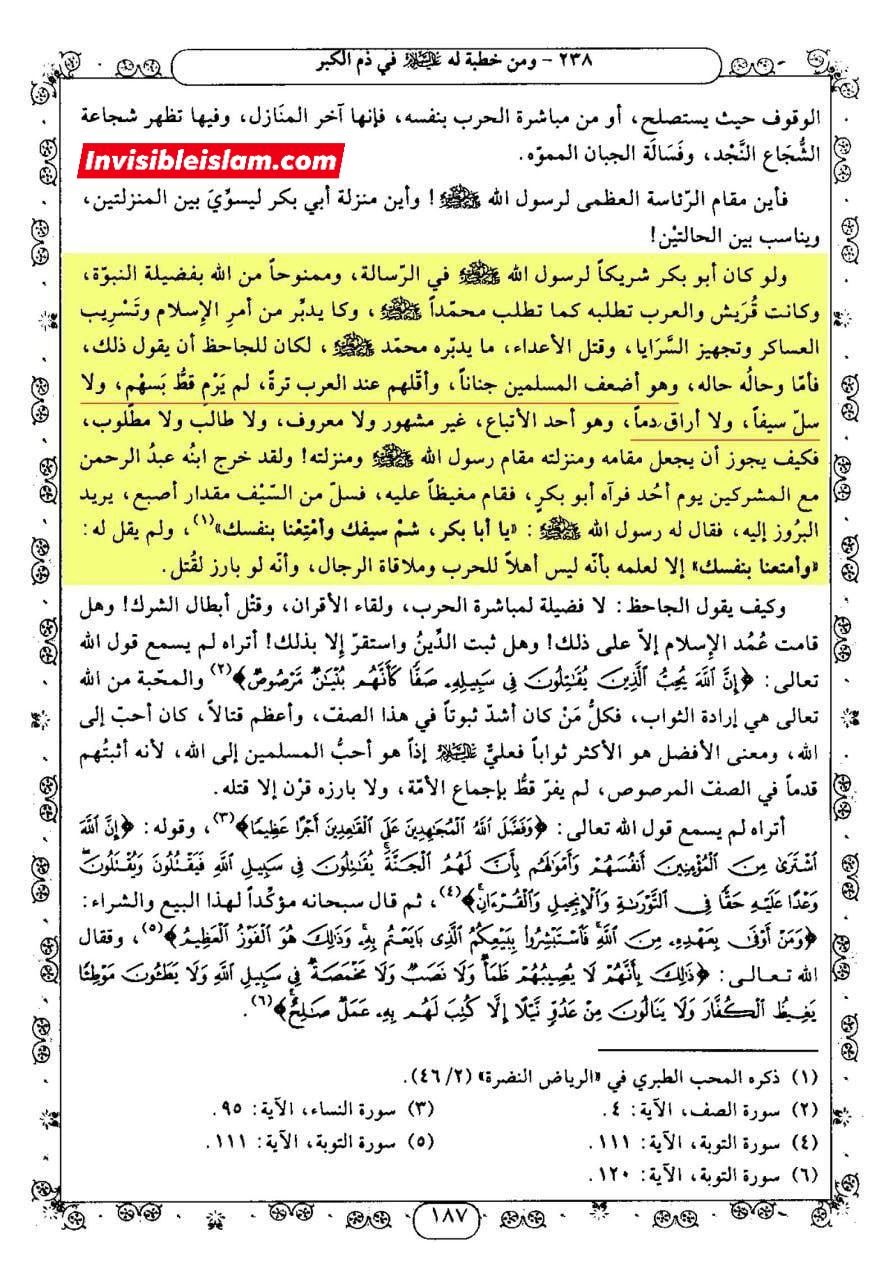 ٢٣٨ - ومن خطبة له عليه السلام في ذم الكبر
الوقوف حيث يستصلح، أو من مباشرة الحرب بنفسه، فإنها آخر المنَازل، وفيها تظهر شجاعة
الشُّجَاع النَّجْد، وفَسَالَة الجبان المموّه.
Invisibleislam.com
فأين مقام الرّئاسة العظمى لرسول الله ﷺ! وأين منزلة أبي بكر ليسوِّيَ بين المنزلتين،
ويناسب بين الحالتيْن!
ولو كان أبو بكر شريكاً لرسول الله ﷺ في الرّسالة، وممنوحاً من الله بفضيلة النبوّة،
وكانت قُرَيش والعرب تطلبه كما تطلب محمّداً ﷺ، وكا يدبِّر من أمرِ الإسلام وتَسْرِيب
العساكر وتجهيز السَّرَايا، وقتل الأعداء، ما يدبّره محمّد ﷺ، لكان للجاحظ أن يقول ذلك،
فأمّا وحالُه حاله، وهو أضعف المسلمين جناناً، وأقلهم عند العرب ترةً، لم يَرْمِ قطُّ بسَهْمٍ، ولا
سلّ سيفاً، ولا أراق دماً، وهو أحد الأتباع، غير مشهور ولا معروف، ولا طالب ولا مطلوب،
فكيف يجوز أن يجعل مقامه ومنزلته مقام رسول الله ﷺ ومنزلته! ولقد خرج ابنُه عبدُ الرحمن
مع المشركين يوم أحُد فرآه أبو بكرٍ، فقام مغيظاً عليه، فسلّ من السّيْف مقدار أصبع، يريد
البرُوز إليه، فقال له رسول الله ﷺ: «يا أبا بكر، شمْ سيفك وأمْتِعْنا بنفسك»(١)، ولم يقل له:
«وأمتعنا بنفسك» إلا لعلمه بأنّه ليس أهلاً للحرب وملاقاة الرجال، وأنه لو بارز لقُتل.
وكيف يقول الجاحظ: لا فضيلة لمباشرة الحرب، ولقاء الأقران، وقتْل أبطال الشرك! وهل
قامت عُمُد الإسلام إلاّ على ذلك! وهل ثبت الدِّينُ واستقرّ إلا بذلك! أتراه لم يسمع قول الله
تعالى: ﴿إِنَّ ٱللَّهَ يُحِبُّ ٱلَّذِينَ يُقَٰتِلُونَ فِى سَبِيلِهِۦ صَفًّا كَأَنَّهُم بُنْيَٰنٌ مَّرْصُوصٌ﴾(٢) والمحّبة من الله
تعالى هي إرادة الثواب، فكلُّ مَنْ كان أشدّ ثبوتاً في هذا الصفّ، وأعظم قتالاً، كان أحبّ إلى
الله، ومعنى الأفضل هو الأكثر ثواباً فعليٌّ عليه السلام إذاً هو أحبُّ المسلمين إلى الله، لأنه أثبتُهم
قدماً في الصفّ المرصوص، لم يفرّ قطُّ بإجماع الأمّة، ولا بارزه قرْن إلا قتله.
أتراه لم يسمع قول الله تعالى: ﴿وَفَضَّلَ ٱللَّهُ ٱلْمُجَٰهِدِينَ عَلَى ٱلْقَٰعِدِينَ أَجْرًا عَظِيمًا﴾(٣)، وقوله: ﴿إِنَّ ٱللَّهَ
ٱشْتَرَىٰ مِنَ ٱلْمُؤْمِنِينَ أَنفُسَهُمْ وَأَمْوَٰلَهُم بِأَنَّ لَهُمُ ٱلْجَنَّةَ يُقَٰتِلُونَ فِى سَبِيلِ ٱللَّهِ فَيَقْتُلُونَ وَيُقْتَلُونَ
وَعْدًا عَلَيْهِ حَقًّا فِى ٱلتَّوْرَىٰةِ وَٱلْإِنجِيلِ وَٱلْقُرْءَانِ﴾(٤)، ثم قال سبحانه مؤكّداً لهذا البيع والشراء:
﴿وَمَنْ أَوْفَىٰ بِعَهْدِهِۦ مِنَ ٱللَّهِ فَٱسْتَبْشِرُوا۟ بِبَيْعِكُمُ ٱلَّذِى بَايَعْتُم بِهِۦ وَذَٰلِكَ هُوَ ٱلْفَوْزُ ٱلْعَظِيمُ﴾(٥)، وققال
الله تعالى: ﴿ذَٰلِكَ بِأَنَّهُمْ لَا يُصِيبُهُمْ ظَمَأٌ وَلَا نَصَبٌ وَلَا مَخْمَصَةٌ فِى سَبِيلِ ٱللَّهِ وَلَا يَطَـُٔونَ مَوْطِئًا
يَغِيظُ ٱلْكُفَّارَ وَلَا يَنَالُونَ مِنْ عَدُوٍّ نَّيْلًا إِلَّا كُتِبَ لَهُم بِهِۦ عَمَلٌ صَٰلِحٌ﴾(٦).
(١) ذكره المحب الطبري في «الرياض النضرة» (٤٦/٢).
(٢) سورة الصف، الآية: ٤. (٣) سورة النساء، الآية: ٩٥.
(٤) سورة التوبة، الآية: ١١١. (٥) سورة التوبة، الآية: ١١١.
(٦) سورة التوبة، الآية: ١٢٠.
١٨٧